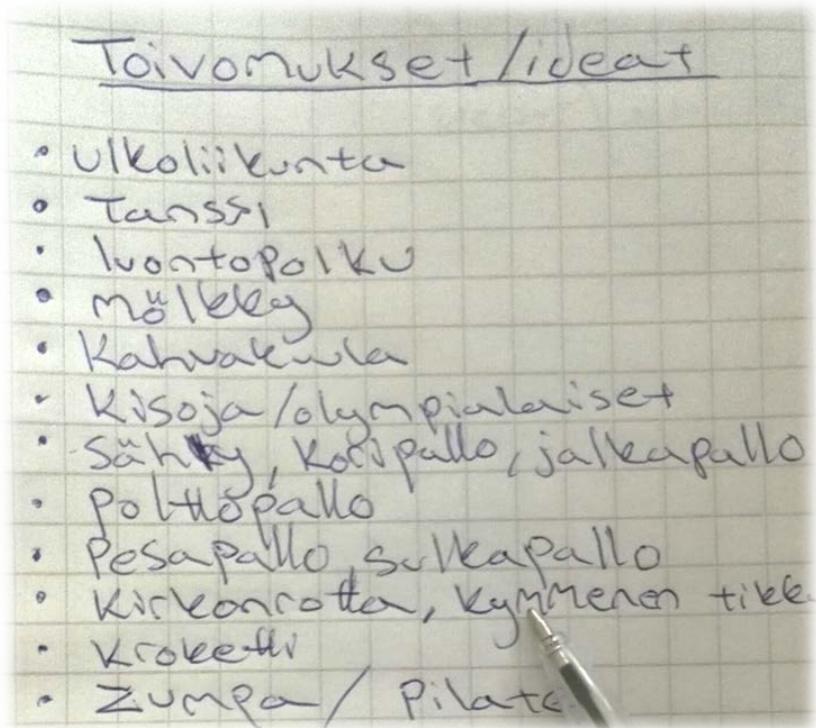 Toivomukset/ideat
• Ulkoliikunta
• Tanssi
• luontopolku
• mölkky
• Kahvakuula
• Kisoja/olympialaiset
• Sähky, koripallo, jalkapallo
• polttopallo
• Pesäpallo, sulkapallo
• Kirkonrotta, kymmenen tikk
• Kroketti
• Zumpa/ Pilate